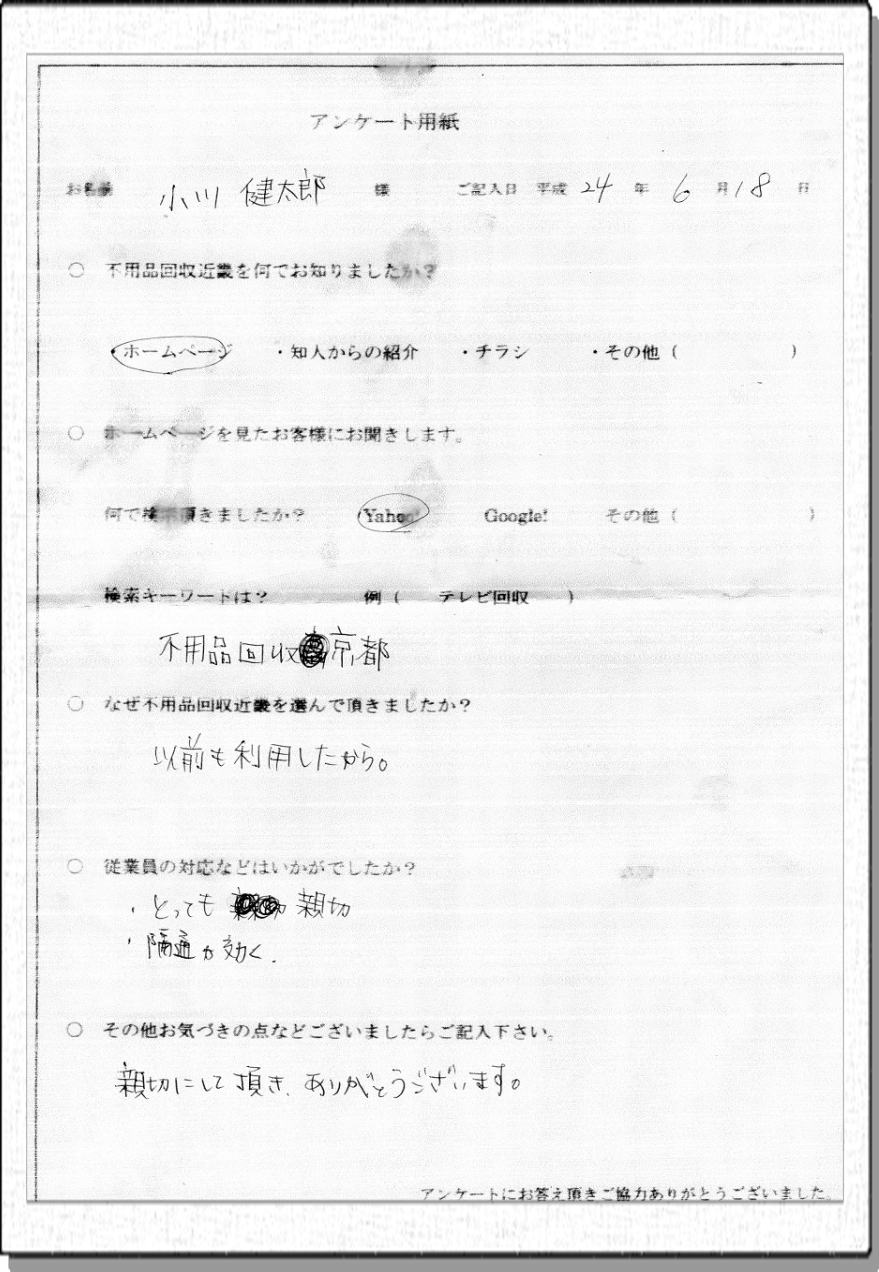 アンケート用紙
お名前 小川 健太郎 様 ご記入日 平成 24 年 6 月 18 日
○ 不用品回収近畿を何でお知りましたか?
・ホームページ ・知人からの紹介 ・チラシ ・その他 ( )
○ ホームページを見たお客様にお聞きします。
何で検索頂きましたか? Yahoo! Google! その他 ( )
検索キーワードは? 例 ( テレビ回収 )
不用品回収 京都
○ なぜ不用品回収近畿を選んで頂きましたか?
以前も利用したから。
○ 従業員の対応などはいかがでしたか?
・とっても 親切
・隔通が効く.
○ その他お気づきの点などございましたらご記入下さい。
親切にして頂き、ありがとうございます。
アンケートにお答え頂きご協力ありがとうございました。